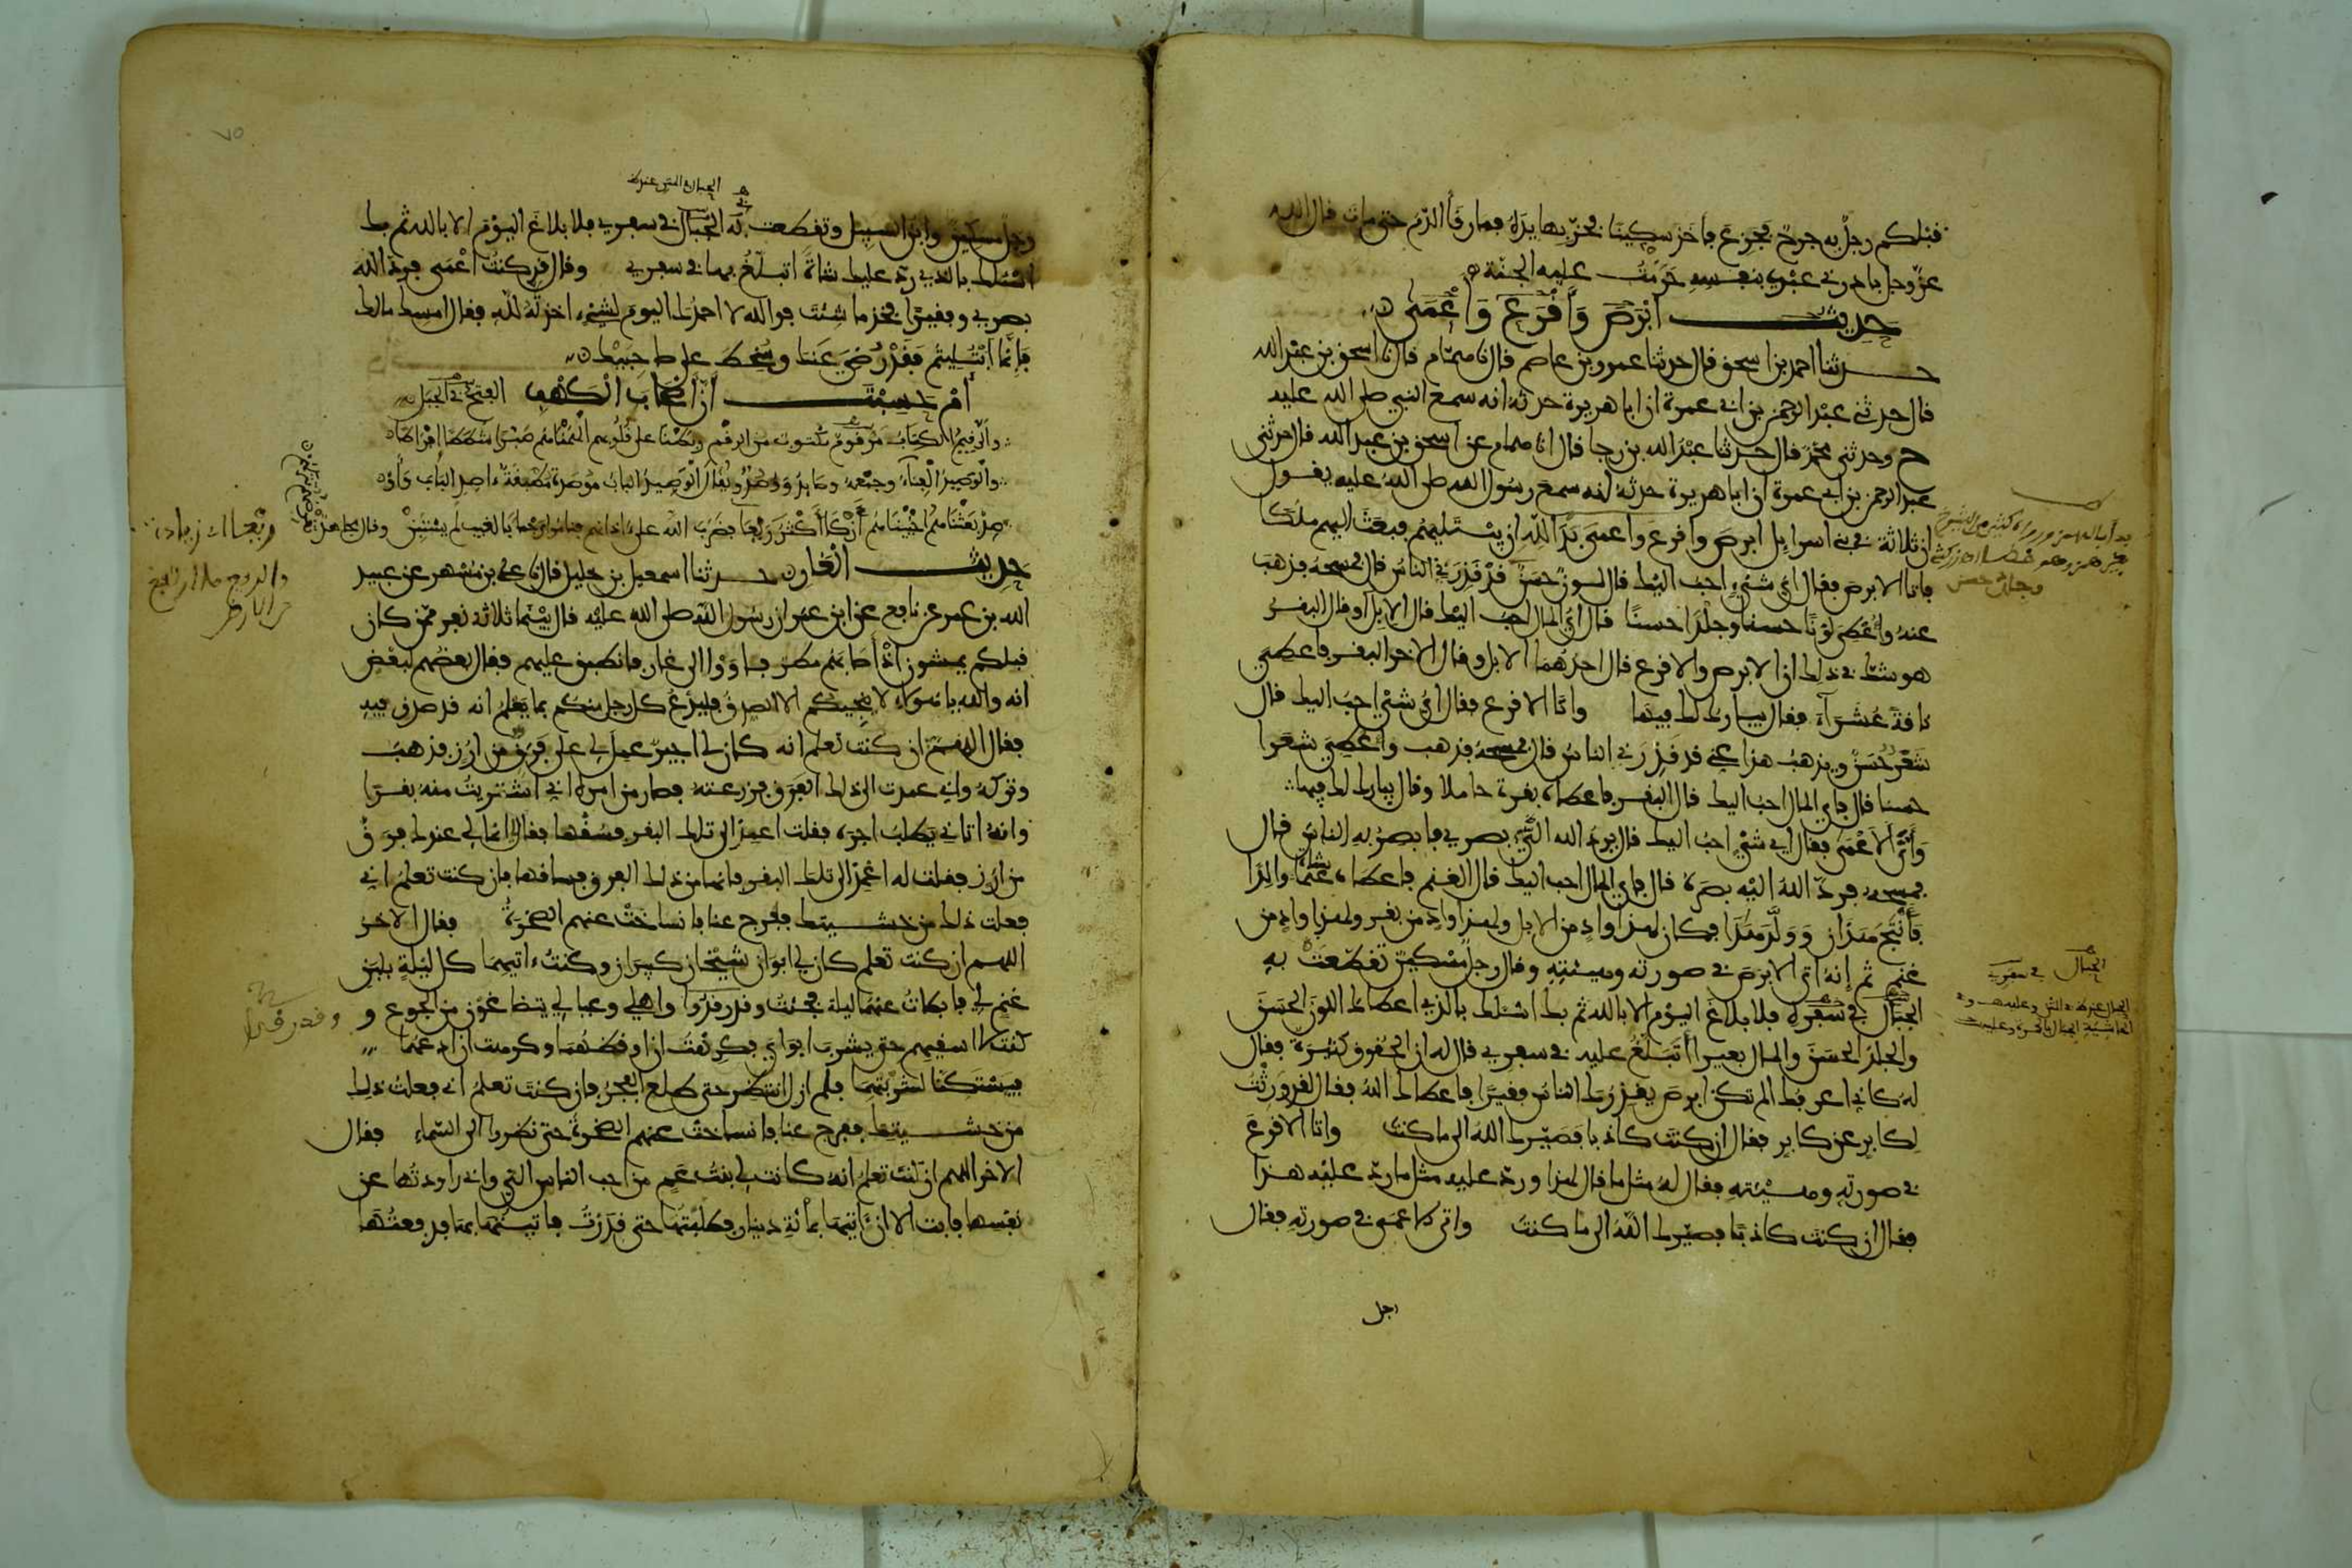 قبلكم رجل به جرح فجزع فأخذ سكينا فحز بها يده فما رقأ الدم حتى مات قال الله
عز وجل بادرني عبدي بنفسه حرمت عليه الجنة
حديث ابرص وأقرع وأعمى
حدثنا احمد بن اسحق قال حدثنا عمرو بن عاصم قال نا همام قال نا اسحق بن عبد الله
قال حدثني عبد الرحمن بن ابي عمرة ان ابا هريرة حدثه انه سمع النبي صلى الله عليه
ح وحدثني محمد قال حدثنا عبد الله بن رجا قال انا همام عن اسحق بن عبد الله قال حدثني
عبد الرحمن بن ابي عمرة ان ابا هريرة حدثه انه سمع رسول الله صلى الله عليه يقول
ان ثلاثة في بني اسرايل ابرص واقرع واعمى بدا لله ان يبتليهم فبعث اليهم ملكا
فاتا الابرص فقال اي شيء احب اليك قال لون حسن قد قذرني الناس قال فمسحه فذهب
عنه وأعطي لونا حسنا وجلدا حسنا قال اي المال احب اليك قال الابل او قال البقر
هو شك في ذلك ان الابرص والاقرع قال احدهما الابل وقال الاخر البقر فاعطي
ناقة عشرآء فقال يبارك لك فيها واتا الاقرع فقال اي شيء احب اليك قال
شعر حسن ويذهب هذا عني قد قذرني الناس قال فمسحه فذهب وأعطي شعرا
حسنا قال فاي المال احب اليك قال البقر فاعطاه بقرة حاملا وقال يبارك لك فيها
وأتى الأعمى فقال اي شيء احب اليك قال يرد الله الي بصري فابصر به الناس قال
فمسحه فرد الله اليه بصره قال فاي المال احب اليك قال الغنم فاعطاه شاة والدا
فأنتج هذان وولد هذا فكان لهذا واد من الابل ولهذا واد من بقر ولهذا واد من
غنم ثم إنه اتى الابرص في صورته وهيئته وقال رجل مسكين تقطعت به
الحبال في سفره فلا بلاغ اليوم الا بالله ثم بك اسئلك بالذي اعطاك اللون الحسن
والجلد الحسن والمال بعيرا أتبلغ عليه في سفري فقال له ان الحقوق كثيرة فقال
له كاني اعرفك الم تكن ابرص يقذرك الناس فقيرا فاعطاك الله فقال لقد ورثت
لكابر عن كابر فقال ان كنت كاذبا فصيرك الله الى ما كنت واتا الاقرع
في صورته وهيئته فقال له مثل ما قال لهذا ورد عليه مثل ما رد عليه هذا
فقال ان كنت كاذبا فصيرك الله الى ما كنت واتى الاعمى في صورته فقال
رجل
الحبال في سفره
٧٥
رجل مسكين وابن السبيل وتقطعت به الحبال في سفري فلا بلاغ اليوم الا بالله ثم بك
اسئلك بالذي رد عليك شاة أتبلغ بها في سفري وقال قد كنت أعمى فرد الله
بصري وفقيرا فخذ ما شئت فوالله لا احمدك اليوم لشيء اخذته لله فقال امسك مالك
فانما ابتليتم فقد رضي عنك وسخط على صاحبيك
أم حسبت أن أصحاب الكهف الفتح في الجبل
والرقيم الكتاب مرقوم مكتوب من الرقم ربطنا على قلوبهم ألهمناهم صبرا شططا إفراطا
والوصيد الفناء وجمعه وصايد ووصد ويقال الوصيد الباب موصدة مطبقة اصد الباب وأوصد
بعثناهم أحييناهم أزكا أكثر ريعا فضرب الله على اذانهم فناموا رجما بالغيب لم يستبن وقال مجاهد
حديث الغار حدثنا اسمعيل بن خليل قال نا علي بن مسهر عن عبيد
الله بن عمر عن نافع عن ابن عمر ان رسول الله صلى الله عليه قال بينما ثلاثة نفر ممن كان
قبلكم يمشون اذ أصابهم مطر فأووا الى غار فانطبق عليهم فقال بعضهم لبعض
انه والله يا هؤلاء لا ينجيكم الا الصدق فليدع كل رجل منكم بما يعلم انه قد صدق فيه
فقال اللهم ان كنت تعلم انه كان لي اجير عمل لي على فرق من ارز فذهب
وتركه واني عمدت الى ذلك الفرق فزرعته فصار من امره اني اشتريت منه بقرا
وانه اتاني يطلب اجره فقلت اعمد الى تلك البقر فسقها فقال انما لي عندك فرق
من ارز فقلت له اعمد الى تلك البقر فانها من ذلك الفرق فساقها فان كنت تعلم اني
فعلت ذلك من خشيتك ففرج عنا فانساخت عنهم الصخرة فقال الاخر
اللهم ان كنت تعلم كان لي ابوان شيخان كبيران وكنت اتيهما كل ليلة بلبن
غنم لي فابطات عنهما ليلة فجئت وقد رقدوا واهلي وعيالي يتضاغون من الجوع و
كنت لا اسقيهم حتى يشرب ابواي فكرهت ان اوقظهما وكرهت ان ادعهما
فيستكنا لشربتهما فلم ازل انتظر حتى طلع الفجر فان كنت تعلم اني فعلت ذلك
من خشيتك ففرج عنا فانساخت عنهم الصخرة حتى نظروا الى السماء فقال
الاخر اللهم ان كنت تعلم انه كانت لي بنت عم من احب الناس الي واني راودتها عن
نفسها فابت الا ان آتيها بمائة دينار فطلبتها حتى قدرت فاتيتها بها فدفعتها